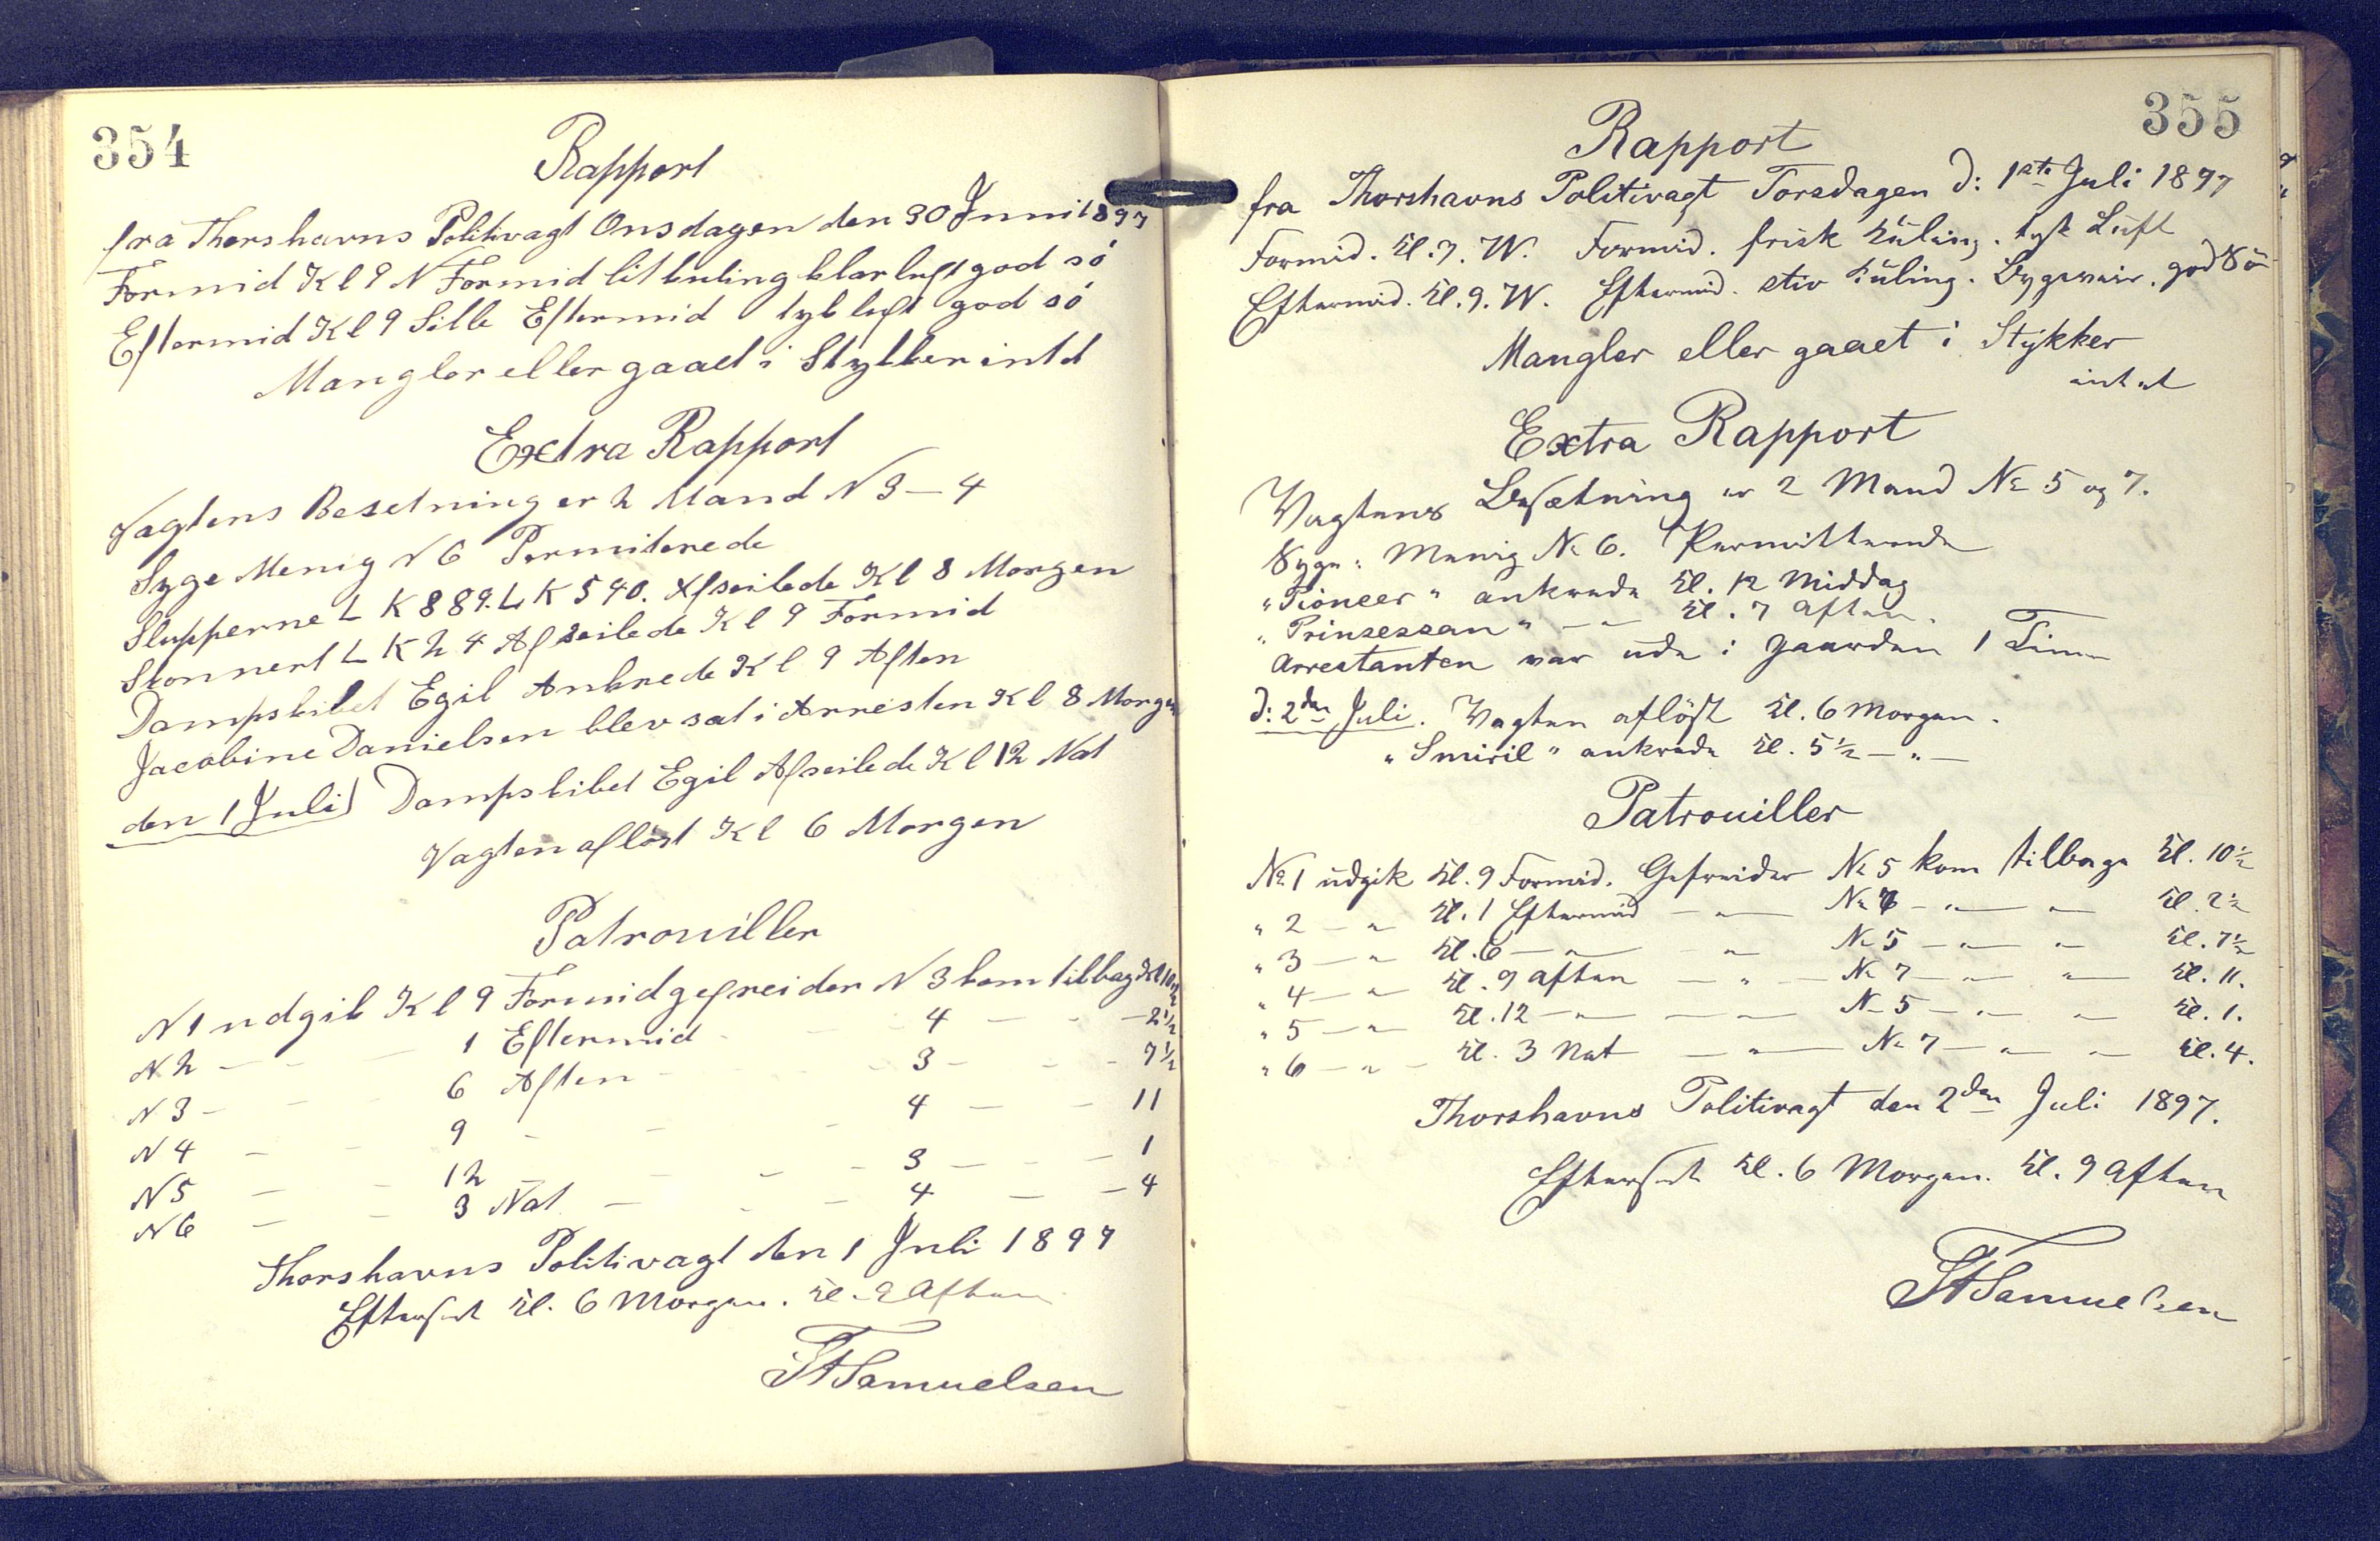 354
Rapport
fra Thorshavns Politivagt Onsdagen den 30 Junni 1897
Formid Kl 9 N Formid lit kuling klar luft god sö
Eftermid Kl 9 Sille Eftermid tyk luft god sö
Mangler eller gaaet i Stykker intet
Extra Rapport
Vagtens Besetning er 2 Mand N 3 – 4
Syge Menig N 6 Permiterede
Slupperne L K 889. L K 540. Afseilede Kl 8 Morgen
Skonnert L K 24 Afseilede Kl 9 Formid
Dampskibet Egil Ankrede Kl 9 Aften
Jacobine Danielsen blev sat i Arresten Kl 8 Morgen
den 1 Juli Dampskibet Egil Afseilede Kl 12 Nat
Vagten aflöst Kl 6 Morgen
Patrouiller
N 1 udgik Kl 9 Formid gefreider N 3 kom tilbag Kl 10 1/2
N 2 — — — 1 Eftermid — — 4 — — — 2 1/2
N 3 — — — 6 Aften — — 3 — — — 7 1/2
N 4 — — 9 — — — 4 — — 11
N 5 — — 12 — — — 3 — — 1
N 6 — — 3 Nat — — — 4 — — 4
Thorshavns Politivagt den 1 Juli 1897
Efterset Kl. 6 Morgen. Kl. 9 Aften
Samuelsen
355
Rapport
fra Thorshavns Politivagt Torsdagen d: 1ste Juli 1897
Formid. Kl. 9. W. Formid. frisk Kuling. tyk Luft
Eftermid. Kl. 9. W. Eftermid. stiv Kuling. Bygeveir. god Sö
Mangler eller gaaet i Stykker
intet
Extra Rapport
Vagtens Besætning er 2 Mand No 5 og 7.
Syge: Menig No 6. Permitterede
"Pioneer" ankrede Kl. 12 Middag
"Prinsessan" — " — Kl. 7 Aften.
Arrestanten var ude i Gaarden 1 Time
d: 2den Juli. Vagten aflöst Kl. 6 Morgen.
"Smiril" ankrede Kl. 5 1/2 — " —
Patrouiller
No 1 udgik Kl. 9 Formid. Gefreider No 5 kom tilbage Kl. 10 1/2
" 2 — " Kl. 1 Eftermid — " — No 7 — " — " — Kl. 2 1/2
" 3 — " Kl. 6 — " — " No 5 — " — " — Kl. 7 1/2
" 4 — " Kl. 9 Aften — " — No 7 — " — " — Kl. 11.
" 5 — " Kl. 12 — " — — " — No 5 — " — " — Kl. 1.
" 6 — " — Kl. 3 Nat — " — No 7 — " — " — Kl. 4.
Thorshavns Politivagt den 2den Juli 1897.
Efterset Kl. 6 Morgen. Kl. 9 Aften
Samuelsen